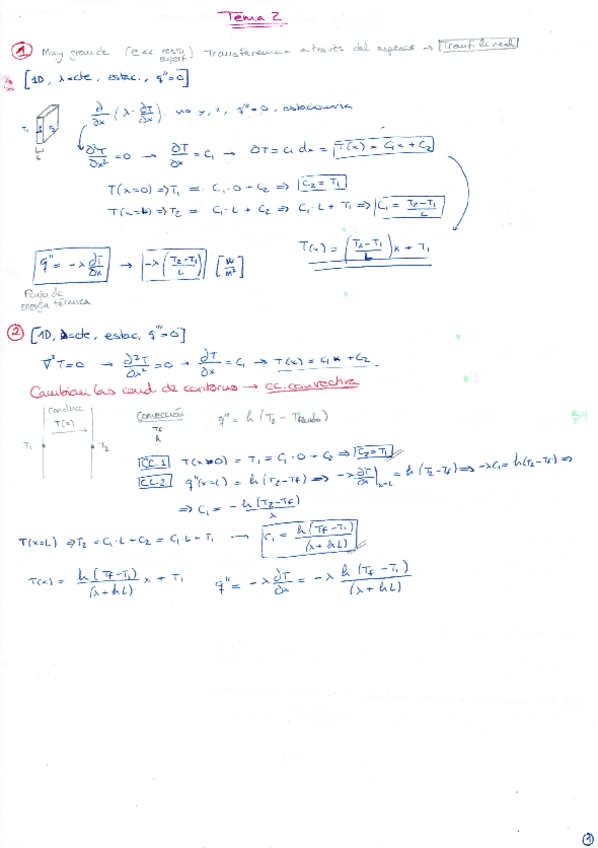 Tema 2
① Muy grande (e<< resto superf.) Transferencia a través del espesor → Transf. lineal
[1D, λ=cte, estac., q'''=0]
∂/∂x (λ · ∂T/∂x) no y, z, q'''=0, estacionaria
T₁ T₂
L
∂²T/∂x² = 0 → ∂T/∂x = C₁ → ∂T = C₁ dx = T(x) = C₁x + C₂
T(x=0) ⇒ T₁ = C₁·0 + C₂ ⇒ C₂ = T₁
T(x=L) ⇒ T₂ = C₁·L + C₂ ⇒ C₁·L + T₁ ⇒ C₁ = (T₂-T₁)/L
T(x) = ((T₂-T₁)/L) x + T₁
q'' = -λ ∂T/∂x → -λ ((T₂-T₁)/L) [W/m²]
Flujo de
energía térmica
② [1D, λ=cte, estac, q'''=0]
∇²T=0 → ∂²T/∂x² = 0 → ∂T/∂x = C₁ → T(x) = C₁x + C₂
Cambian las cond. de contorno → cc. convectiva
conducc.
T(x)
T₁ T₂
Convección q'' = h (T₂ - Tfluido)
Tf
h
CC.1 T(x=0) = T₁ = C₁·0 + C₂ ⇒ C₂=T₁
CC.2 q''(x=L) = h(T₂-Tf) ⇒ -λ ∂T/∂x|x=L = h(T₂-Tf) ⇒ -λC₁ = h(T₂-Tf) ⇒
⇒ C₁ = -h(T₂-Tf)/λ
T(x=L) ⇒ T₂ = C₁·L + C₂ = C₁L + T₁ → C₁ = h(Tf-T₁)/(λ+hL)
T(x) = h(Tf-T₁)/(λ+hL) x + T₁ q'' = -λ ∂T/∂x = -λ h(Tf-T₁)/(λ+hL)
①